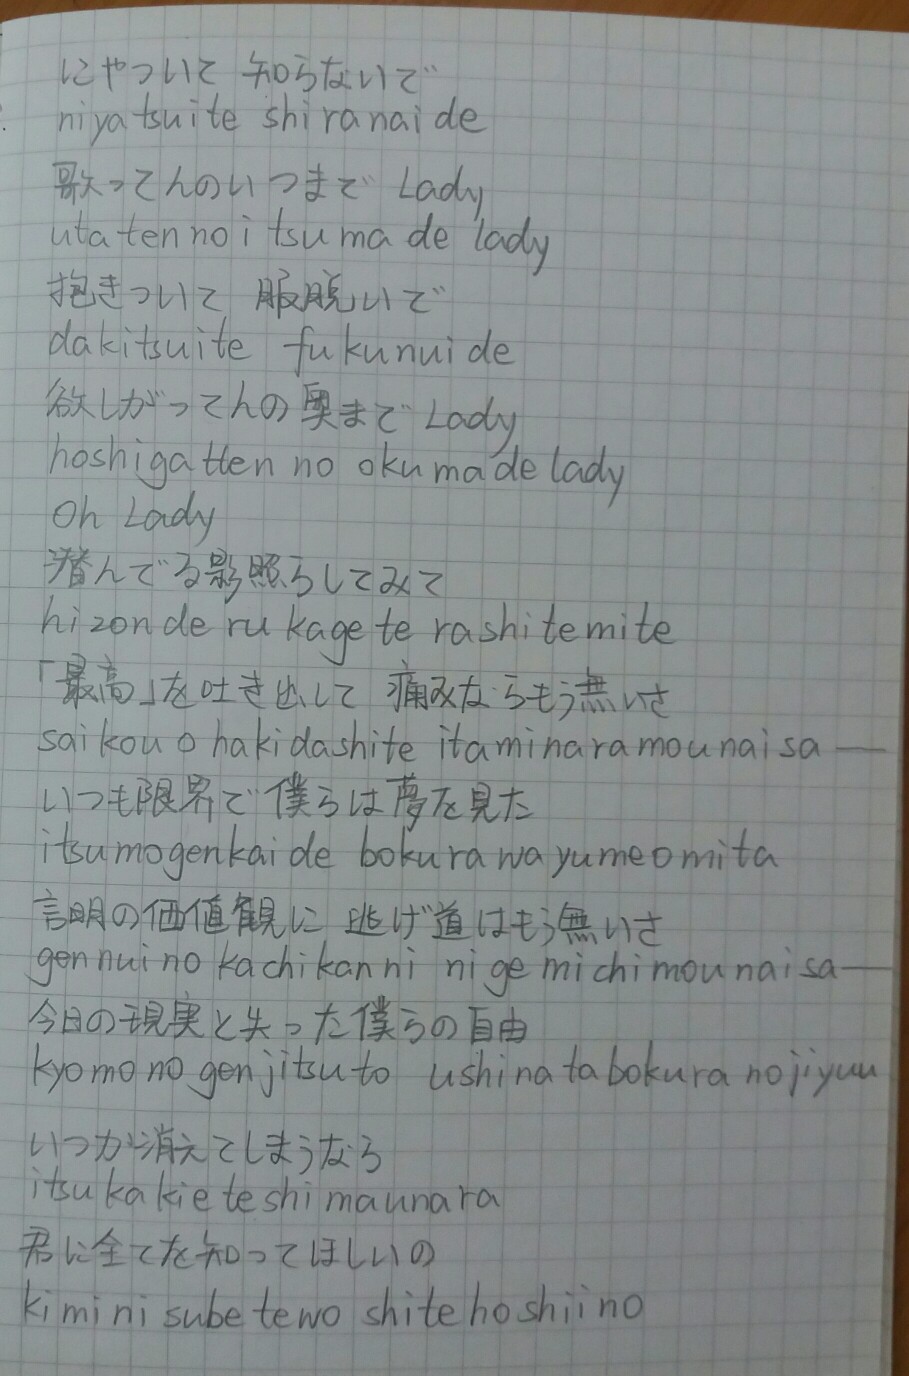 にやついて 知らないで
niyatsuite shiranaide
歌ってんのいつまで Lady
utatennoitsumade lady
抱きついて 服脱いで
dakitsuite fukunuide
欲しがってんの奥まで Lady
hoshigatten no okumade lady
Oh Lady
潜んでる影照らしてみて
hizonderu kageterashitemite
「最高」を吐き出して 痛みならもう無いさ
saikou o hakidashite itaminaramounaisa —
いつも限界で僕らは夢を見た
itsumogenkaide bokurawayumeomita
言明の価値観に 逃げ道はもう無いさ
gennuino kachikanni nigemichimounaisa —
今日の現実と失った僕らの自由
kyomono genjitsuto ushinatabokuranojiyuu
いつか消えてしまうなら
itsukakieteshimaunara
君に全てを知ってほしいの
kimini subetewo shitehoshiino